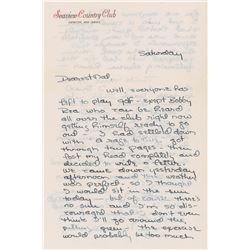 Seaview Country Club
Saturday
Dearest Dad,
Well, everyone has
left to play golf except Bobby
who can be heard
all over the club right now
getting himself ready to go
out. I had settled down
with a
through this pages. Then
lost my head completely and
decided to write a letter.
We came down yesterday
afternoon and the weather
was perfect. So I thought
I would sit in the sun
today but of course there's
no sun and I'm so dis-
couraged that I don't even
think I'll go around the
putting green. The exercise
would probably be too much